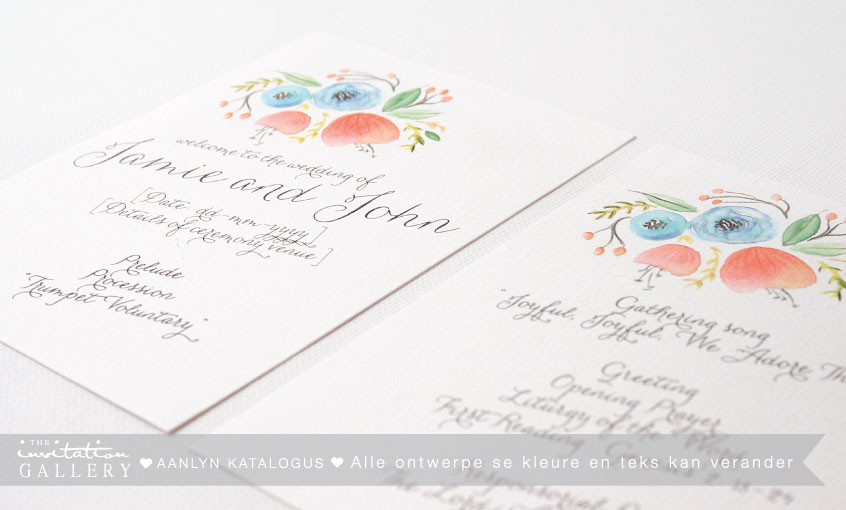 welcome to the wedding of
Jamie and John
[Date: dd-mm-yyyy
[Details of ceremony venue]
Prelude
Procession
"Trumpet Voluntary"
Gathering song
"Joyful, Joyful, We Adore Th
Greeting
Opening Prayer
Liturgy of the Word
First Reading
Responsorial
The Lord
THE
invitation
GALLERY
AANLYN KATALOGUS Alle ontwerpe se kleure en teks kan verander